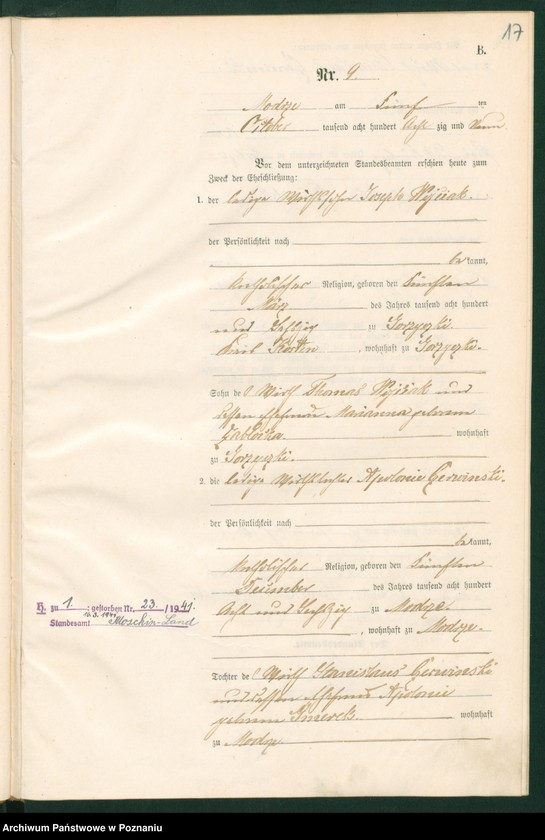 17
B.
Nr. 9.
Modrze am Fünf ten
October tausend acht hundert Acht zig und Neun
Vor dem unterzeichneten Standesbeamten erschien heute zum
Zweck der Eheschließung:
1. der ledige Wirthssohn Joseph Wojciak.
der Persönlichkeit nach
be kannt,
katholischer Religion, geboren den fünften
März des Jahres tausend acht hundert
und Sechzig zu Gorzyczki
Kreis Kosten, wohnhaft zu Gorzyczki.
Sohn des Wirth Thomas Wojciak und
dessen Ehefrau Marianna geborene
wohnhaft
zu Gorzyczki.
2. die ledige Wirthstochter Apolonie Czerwinski.
der Persönlichkeit nach
be kannt,
katholischer Religion, geboren den fünften
Dezember des Jahres tausend acht hundert
Acht und Sechzig zu Modrze.
, wohnhaft zu Modrze.
Tochter des Wirth Stanislaus Czerwinski
und dessen Ehefrau Apolonie
geborene wohnhaft
zu Modrze
H. zu 1. : gestorben Nr. 23 / 1941.
Standesamt Moschin-Land
Archiwum Państwowe w Poznaniu